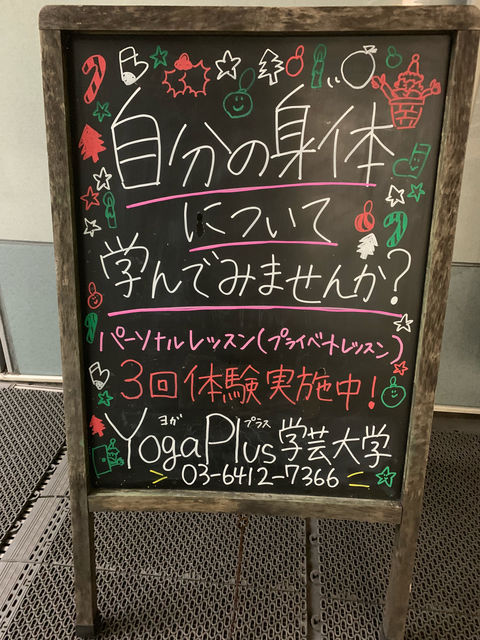 自分の身体
について
学んでみませんか?
パーソナルレッスン(プライベートレッスン)
3回体験実施中!
ヨガ プラス
YogaPlus学芸大学
03-6412-7366